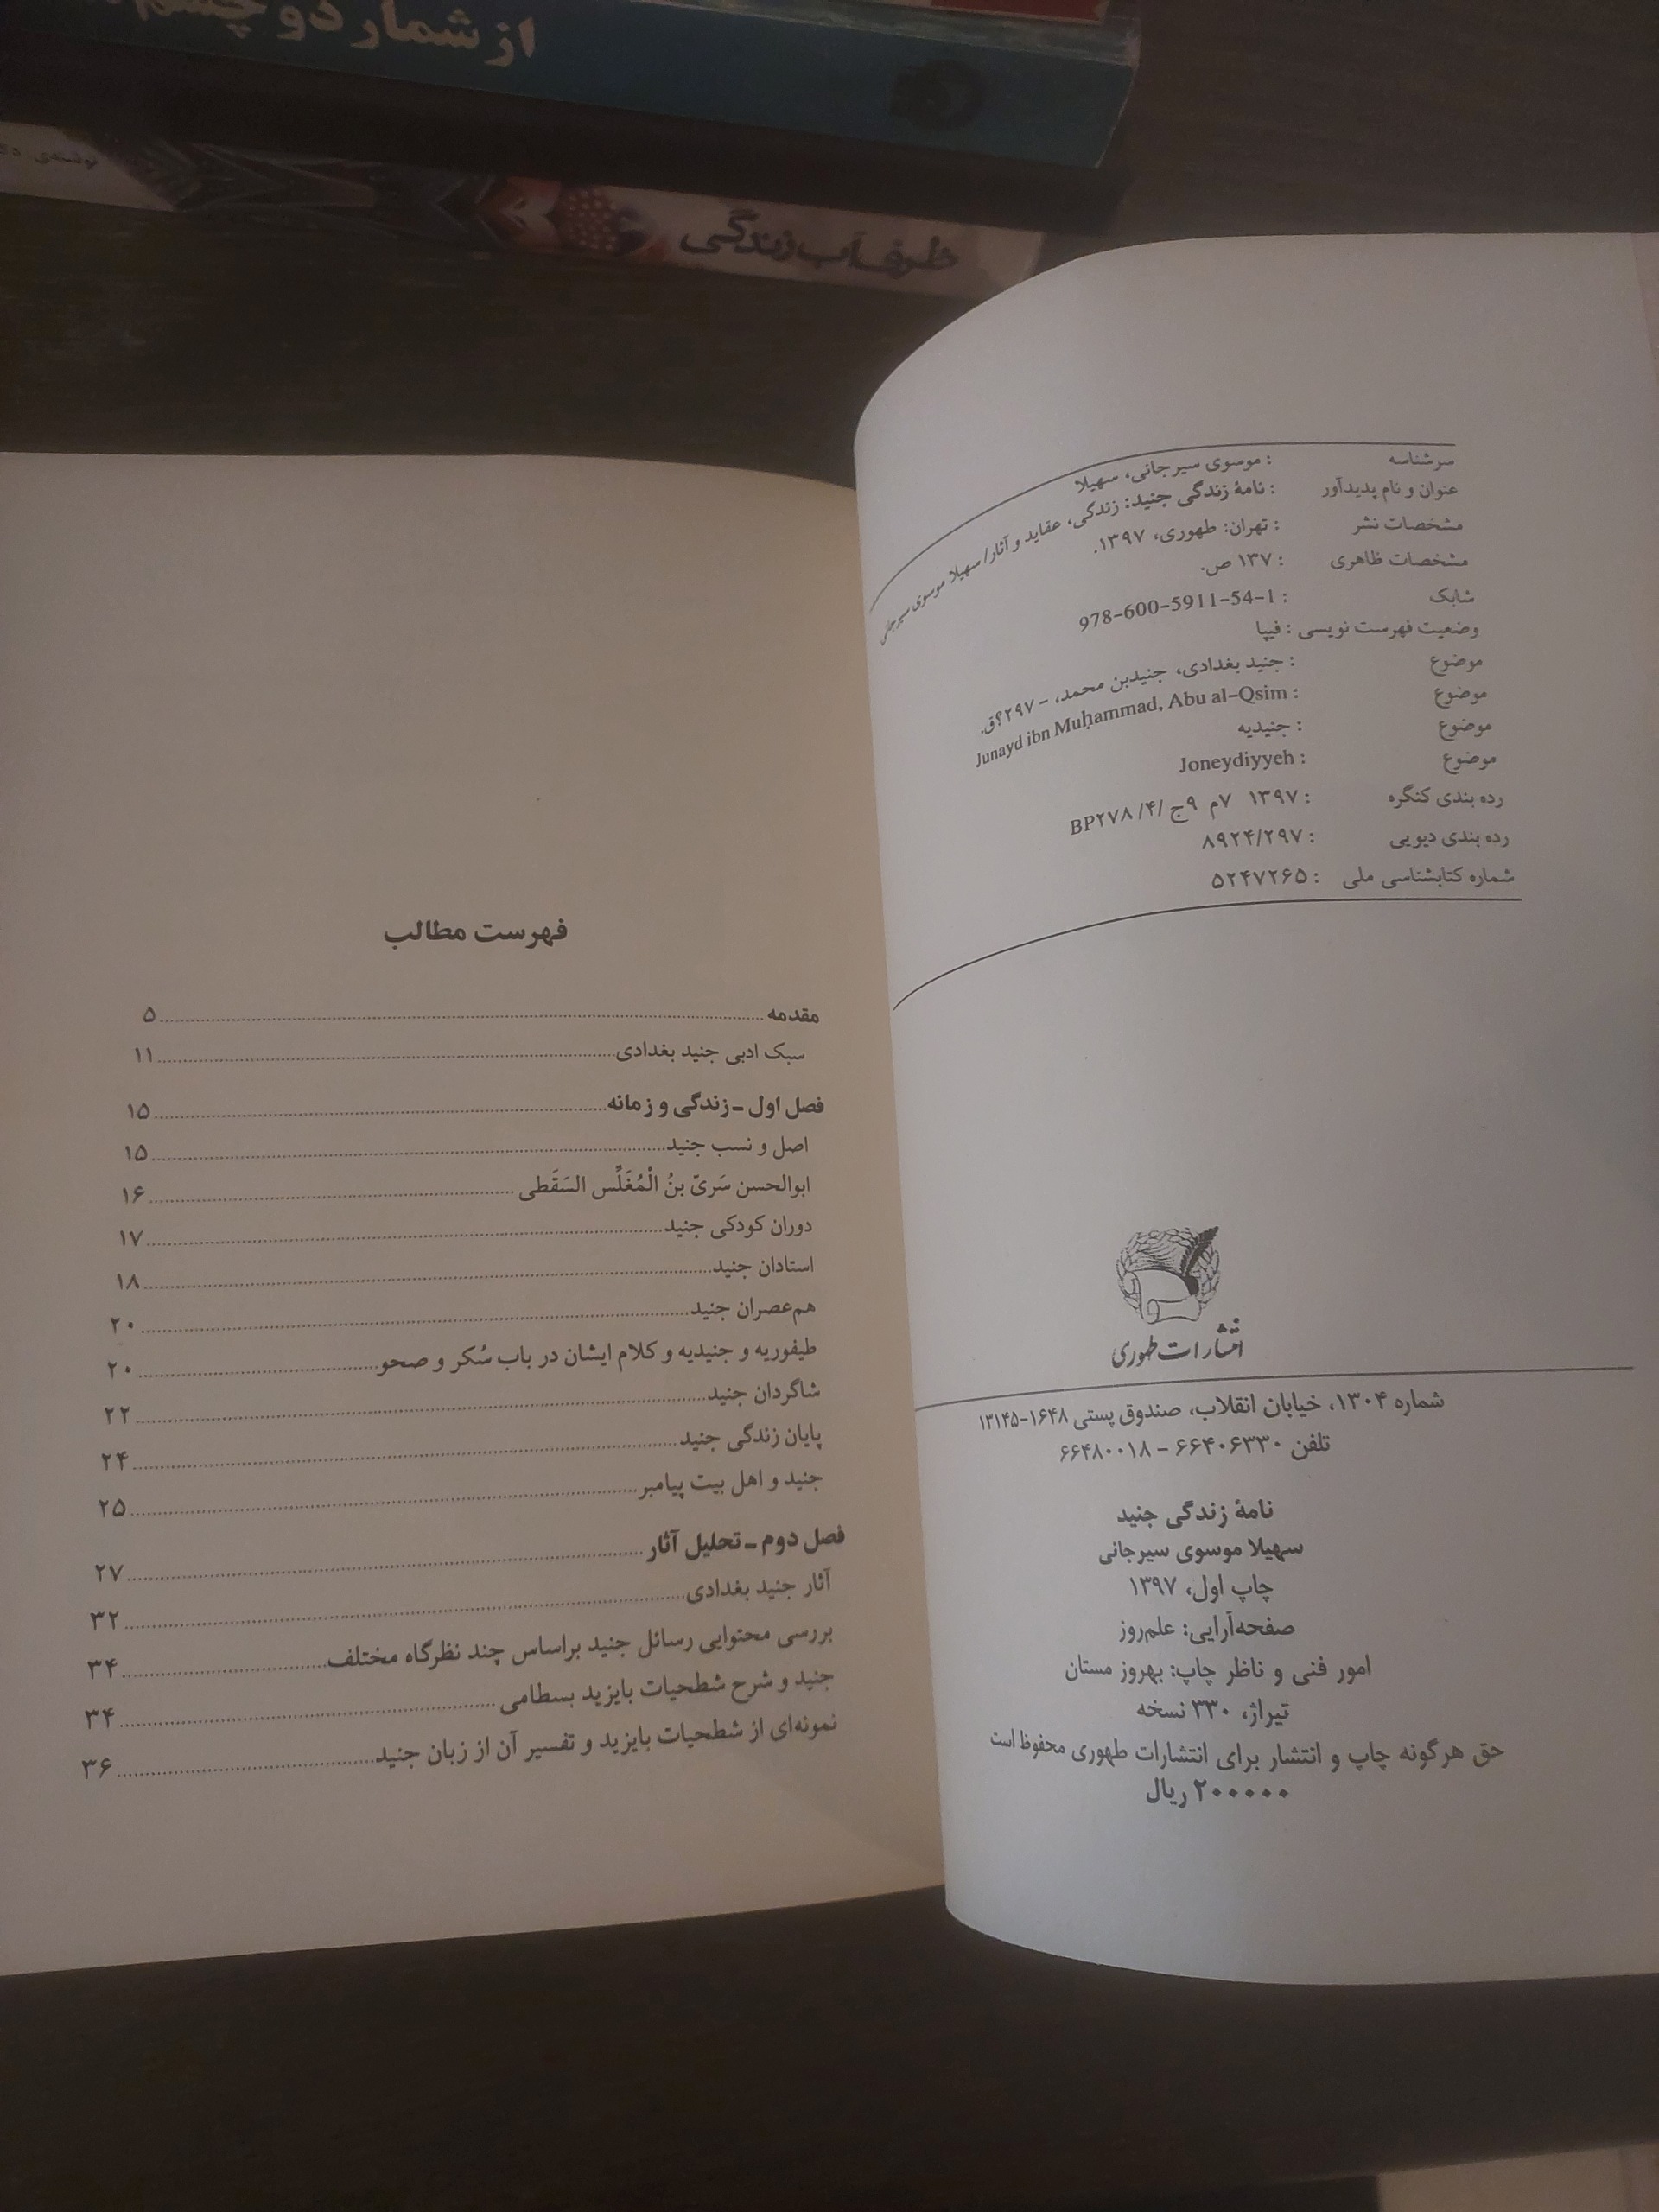 از شمار دو چشم
ظرف آب زندگی
نوشته‌ی
سرشناسه : موسوی سیرجانی، سهیلا
عنوان و نام پدیدآور : نامهٔ زندگی جنید: زندگی، عقاید و آثار/ سهیلا موسوی سیرجانی
مشخصات نشر : تهران: طهوری، ۱۳۹۷.
مشخصات ظاهری : ۱۳۷ ص.
شابک : 978-600-5911-54-1
وضعیت فهرست نویسی : فیپا
موضوع : جنید بغدادی، جنیدبن محمد، - ۲۹۷؟ق.
موضوع : Junayd ibn Muḥammad, Abu al-Qsim
موضوع : جنیدیه
موضوع : Joneydiyyeh
رده بندی کنگره : ۱۳۹۷ ۷م ۹ج /۴/ BP۲۷۸
رده بندی دیویی : ۸۹۲۴/۲۹۷
شماره کتابشناسی ملی : ۵۲۴۷۲۶۵
انتشارات طهوری
شماره ۱۳۰۴، خیابان انقلاب، صندوق پستی ۱۶۴۸-۱۳۱۴۵
تلفن ۶۶۴۰۶۳۳۰ - ۶۶۴۸۰۰۱۸
نامهٔ زندگی جنید
سهیلا موسوی سیرجانی
چاپ اول، ۱۳۹۷
صفحه‌آرایی: علم‌روز
امور فنی و ناظر چاپ: بهروز مستان
تیراژ، ۳۳۰ نسخه
حق هرگونه چاپ و انتشار برای انتشارات طهوری محفوظ است
۲۰۰۰۰۰ ریال
فهرست مطالب
مقدمه ۵
سبک ادبی جنید بغدادی ۱۱
فصل اول ـ زندگی و زمانه ۱۵
اصل و نسب جنید ۱۵
ابوالحسن سَریّ بنُ الْمُغَلِّس السَقَطی ۱۶
دوران کودکی جنید ۱۷
استادان جنید ۱۸
هم‌عصران جنید ۲۰
طیفوریه و جنیدیه و کلام ایشان در باب سُکر و صحو ۲۰
شاگردان جنید ۲۲
پایان زندگی جنید ۲۴
جنید و اهل بیت پیامبر ۲۵
فصل دوم ـ تحلیل آثار ۲۷
آثار جنید بغدادی ۳۲
بررسی محتوایی رسائل جنید براساس چند نظرگاه مختلف ۳۴
جنید و شرح شطحیات بایزید بسطامی ۳۴
نمونه‌ای از شطحیات بایزید و تفسیر آن از زبان جنید ۳۶